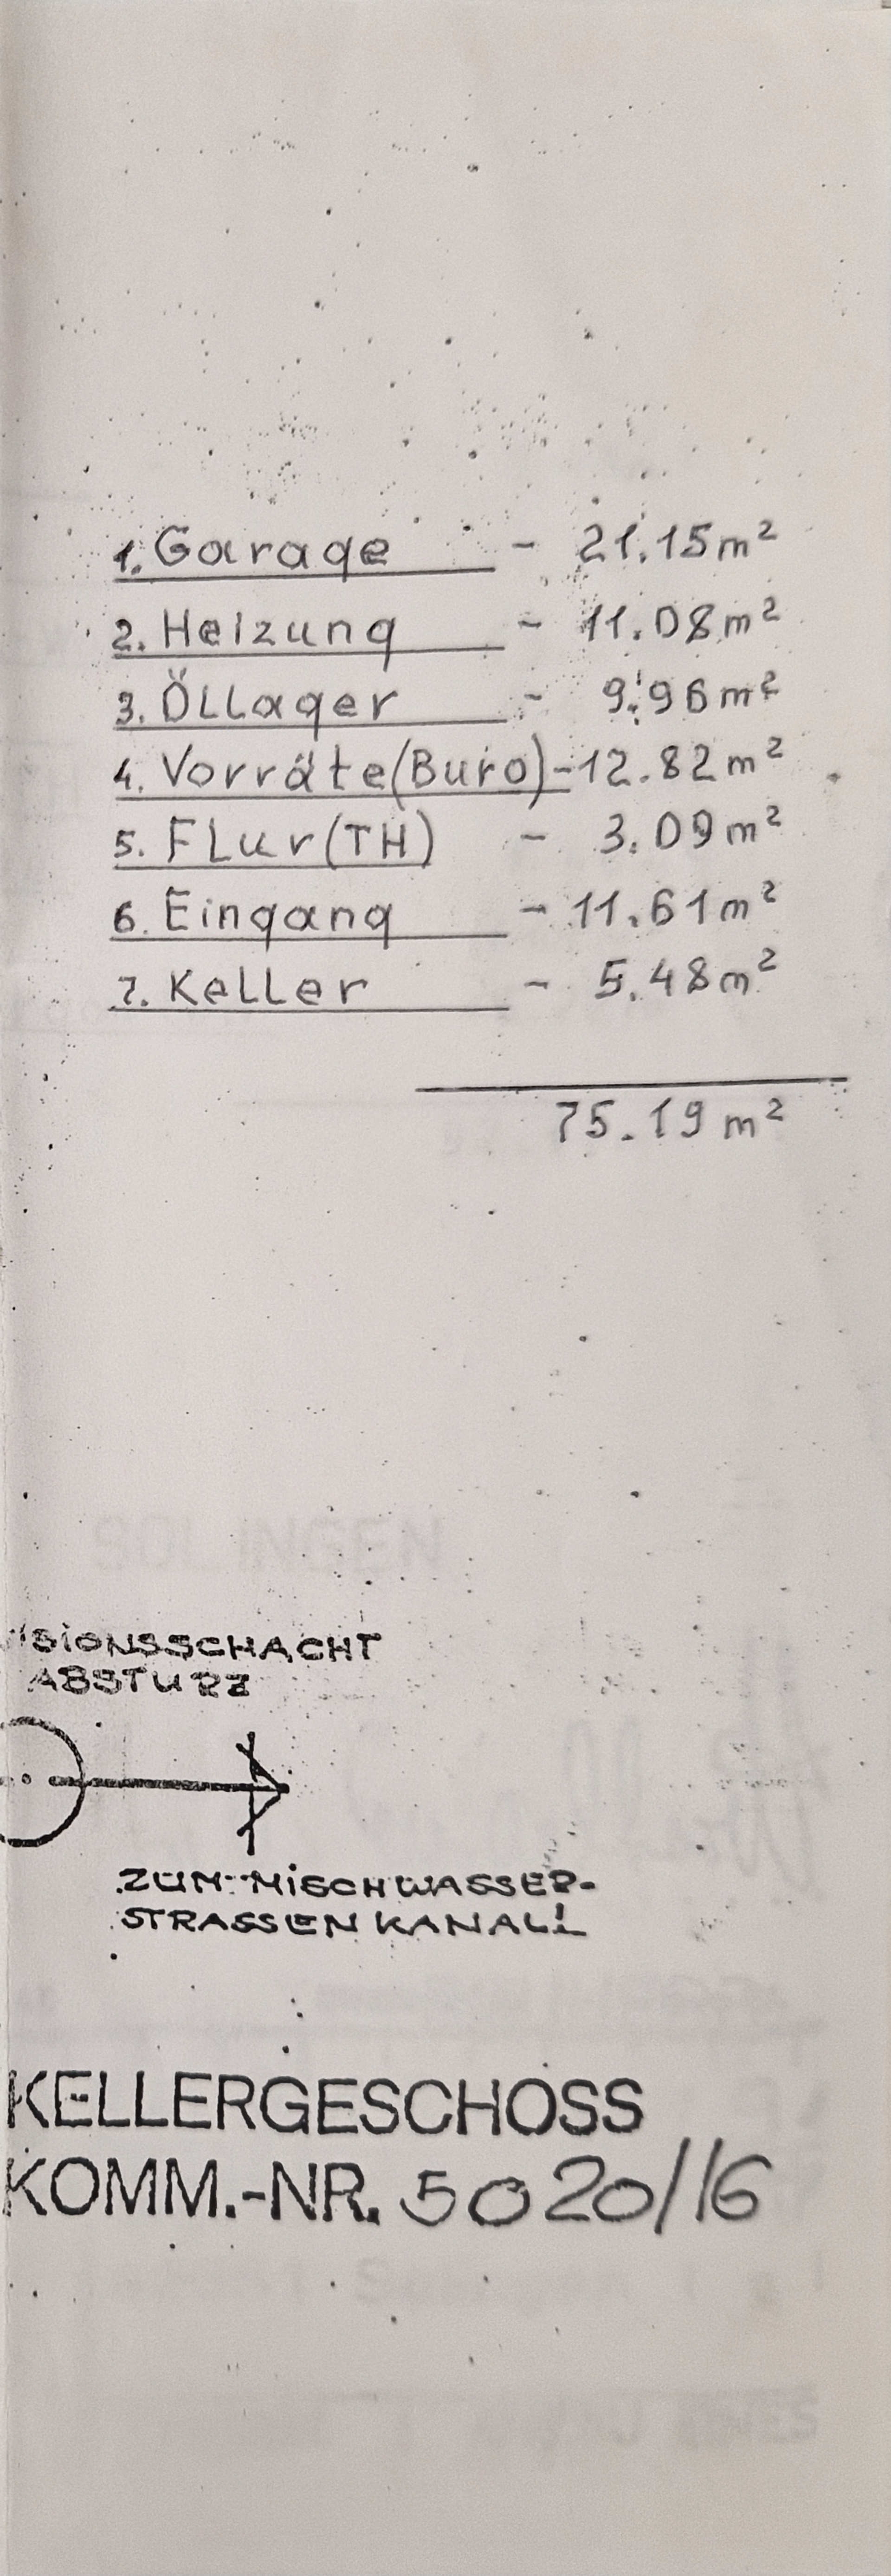 1. Garage - 21.15 m²
2. Heizung - 11.08 m²
3. Öllager - 9.96 m²
4. Vorräte (Buro) - 12.82 m²
5. Flur (TH) - 3.09 m²
6. Eingang - 11.61 m²
7. Keller - 5.48 m²
75.19 m²
SOLINGEN
ISIONSSCHACHT
ABSTURZ
ZUM MISCHWASSER-
STRASSENKANAL!
KELLERGESCHOSS
KOMM.-NR. 5020/16